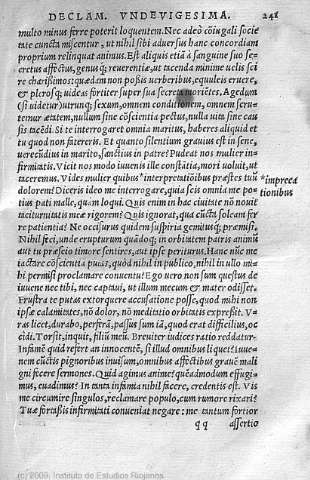 DECLAM. VNDEVIGESIMA. 241
multo minus ferre poterit loquentem. Nec adeò cõiugali socie
tate cuncta miscentur, ut nihil sibi aduersus hanc concordiam
proprium relinquat animus. Est aliquis etiã à sanguine suo se=
cretus affectus, genusq; reuerentiæ, ut tacenda minime uelis sci
re charissimos: quædam non possis uerberibus, equuleis eruere,
& plerosq; uideas fortiter super sua secreta moriẽtes. Agedum
(si uidetur) utrunq; sexum, omnem conditionem, omnem scru=
temur ætatem, nullum sine cõscientia pectus, nulla uita sine cau
sis tacẽdi. Si te interrogaret omnia maritus, haberes aliquid et
tu quod non fatereris. Et quanto silentium grauius est in sene,
uerecũdius in marito, sanctius in patre? Pudeat nos mulier in=
firmitatis. Vicit nos modo iuuenis ille constãtia, mori uoluit, ut
taceremus. Vides mulier quibus* interpretatiõibus præstes tuũ
dolorem? Diceris ideo me interrogare, quia scis omnia me po=
tius pati malle, quàm loqui. Quis enim in hac ciuitate nõ nouit
taciturnitatis meæ rigorem? Quis ignorat, quã cũcta soleam fer
re patientia? Ne occisurus quidem suspiria gemitusq; præmisi.
Nihil feci, unde erupturum quãdoq; in orbitatem patris animũ
aut tu præscio timore sentires, aut ipse periturus. Hanc nũc me
tactare cõscientiã putas, quod nihil in publico, nihil in ullo mi=
hi permisi proclamare conuentu? Ego uero non sum questus de
iuuene nec tibi, nec capitaui, ut illum mecum & mater odisset.
Frustra te putas extorquere accusatione posse, quod mihi non
ipsæ calamitates, nõ dolor, nõ meditatio orbitatis expressit. V=
ras licet, durabo, perferã, passus sum iã, quod erat difficilius, oc
cidi. Torsit, inquit, filiũ meũ. Breuiter iudices ratio reddatur.
Infamẽ quid refert an innocentẽ, si illud omnibus liquet? iuue=
nem cũctis pignoribus inuisum, omnibus affectibus grauẽ mali
gni fecere sermones. Quid aginus anime? quẽadmodum effugi=
mus, euadimus? In tanta infamia nihil facere, credentis est. Vis
me circumire singulos, reclamare populo, cum rumore rixari?
Tuæ forsitãs infirmitati conueniat negare: me tantum fortior
qq assertio
*impreca
tionibus
(c) 2009. Instituto de Estudios Riojanos